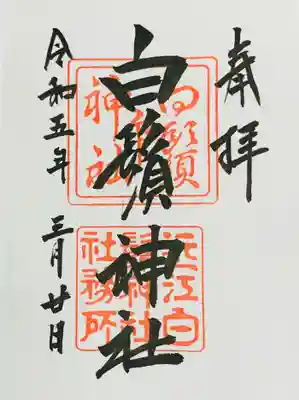 奉拝
白鬚神社
令和五年 三月廿日
白鬚神社
近江白鬚神社社務所